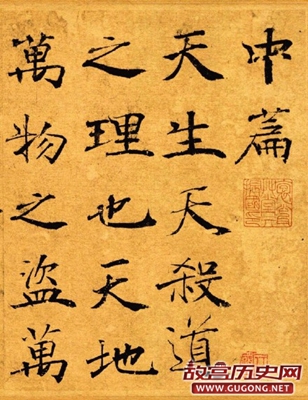 中篇
天生天殺道
之理也天地
萬物之盜萬
故宫历史网
www.GUGONG.net